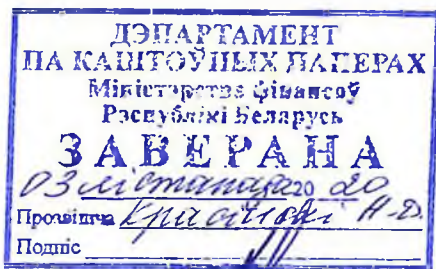 ДЭПАРТАМЕНТ
ПА КАШТОЎНЫХ ПАПЕРАХ
Міністэрства фінансаў
Рэспублікі Беларусь
ЗАВЕРАНА
03 лістапада 20 20
Прозвішча
Подпіс